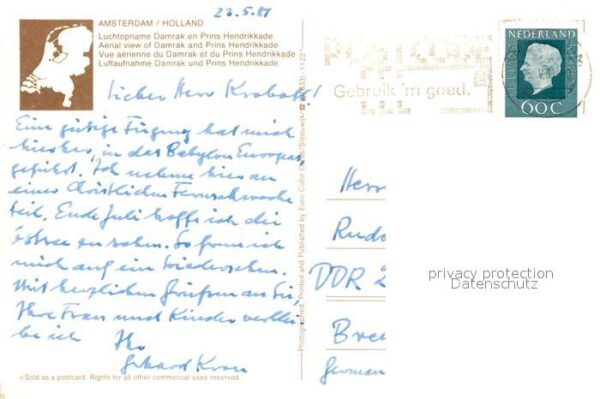 23.5.81
AMSTERDAM / HOLLAND
Luchtopname Damrak en Prins Hendrikkade
Aerial view of Damrak and Prins Hendrikkade
Vue aérienne du Damrak et du Prins Hendrikkade
Luftaufnahme Damrak und Prins Hendrikkade
Lieber Herr
Eine gütige Fügung hat mich
hierher, in das Babylon Europas
geführt. Ich nehme hier an
einer Christlichen Fernschwoche
teil. Ende Juli hoffe ich die
zu sehn. So freue ich
mich auf ein Wiedersehen.
Mit herzlichen Grüßen an Sie,
Ihre Frau und Kinder verblei
be ich Ihr
Gerhard
× Sold as a postcard. Rights for all other commercial uses reserved.
Photographed, Printed and Published by Euro Color Cards/Sleeuwijk/☎ (01833) 1122*
POSTCODE
Gebruik 'm goed.
NEDERLAND
60C
Herr
Rudo
DDR 2
Bre
German
privacy protection
Datenschutz